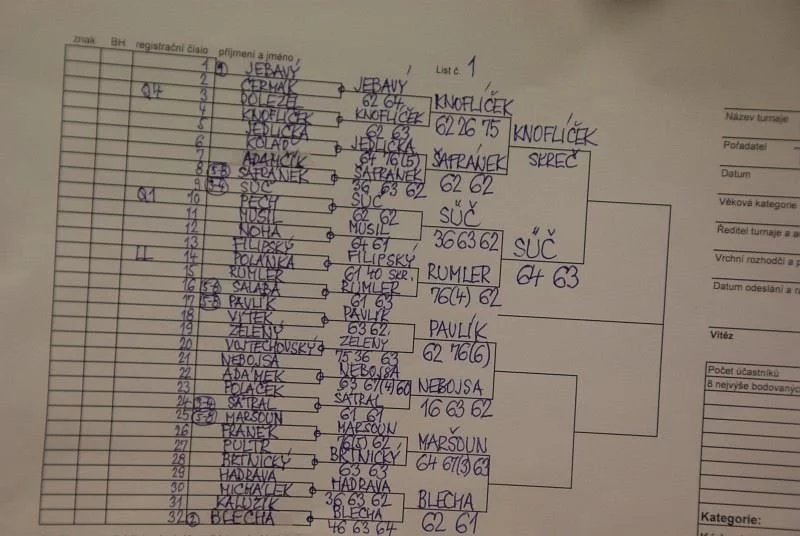 znak BH registrační číslo příjmení a jméno
List č. 1
1 1 JEBAVÝ
2 ČERMÁK
Q4 3 DOLEŽEL
4 KNOFLÍČEK
5 JEDLIČKA
6 KOLÁŘ
7 ADAMČÍK
8 5-8 ŠAFRÁNEK
9 3-4 SŮČ
Q1 10 PECH
11 MUSIL
12 NOHA
13 FILIPSKÝ
LL 14 POLANKA
15 RUMLER
16 5-8 SALABA
17 5-8 PAVLÍK
18 VÍTEK
19 ZELENÝ
20 VOJTĚCHOVSKÝ
21 NEBOJSA
22 ADÁMEK
23 POLÁČEK
24 3-4 SATRAL
25 5-8 MARŠOUN
26 FRANEK
27 PULTR
28 BRTNICKÝ
29 HADRAVA
30 MICHÁLEK
31 KALUŽÍK
32 2 BLECHA
JEBAVÝ
62 64
KNOFLÍČEK
62 63
JEDLIČKA
64 76(5)
ŠAFRÁNEK
36 63 62
SŮČ
62 62
MUSIL
64 61
FILIPSKÝ
61 40 SKR.
RUMLER
61 63
PAVLÍK
63 62
ZELENÝ
75 36 63
NEBOJSA
63 67(4) 60
SATRAL
61 67
MARŠOUN
76(5) 62
BRTNICKÝ
63 63
HADRAVA
36 63 62
BLECHA
46 63 64
KNOFLÍČEK
62 26 75
ŠAFRÁNEK
62 62
SŮČ
36 63 62
RUMLER
76(4) 62
PAVLÍK
62 76(6)
NEBOJSA
16 63 62
MARŠOUN
64 67(3) 63
BLECHA
62 61
KNOFLÍČEK
SKREČ
SŮČ
64 63
Název turnaje
Pořadatel
Datum
Věková kategorie
Ředitel turnaje a
Vrchní rozhodčí a
Datum odeslání a
Vítěz
Počet účastníků
8 nejvýše bodovaných
Kategorie: